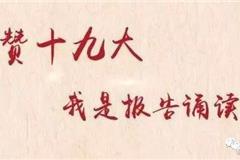 赞十九大
我是报告诵读